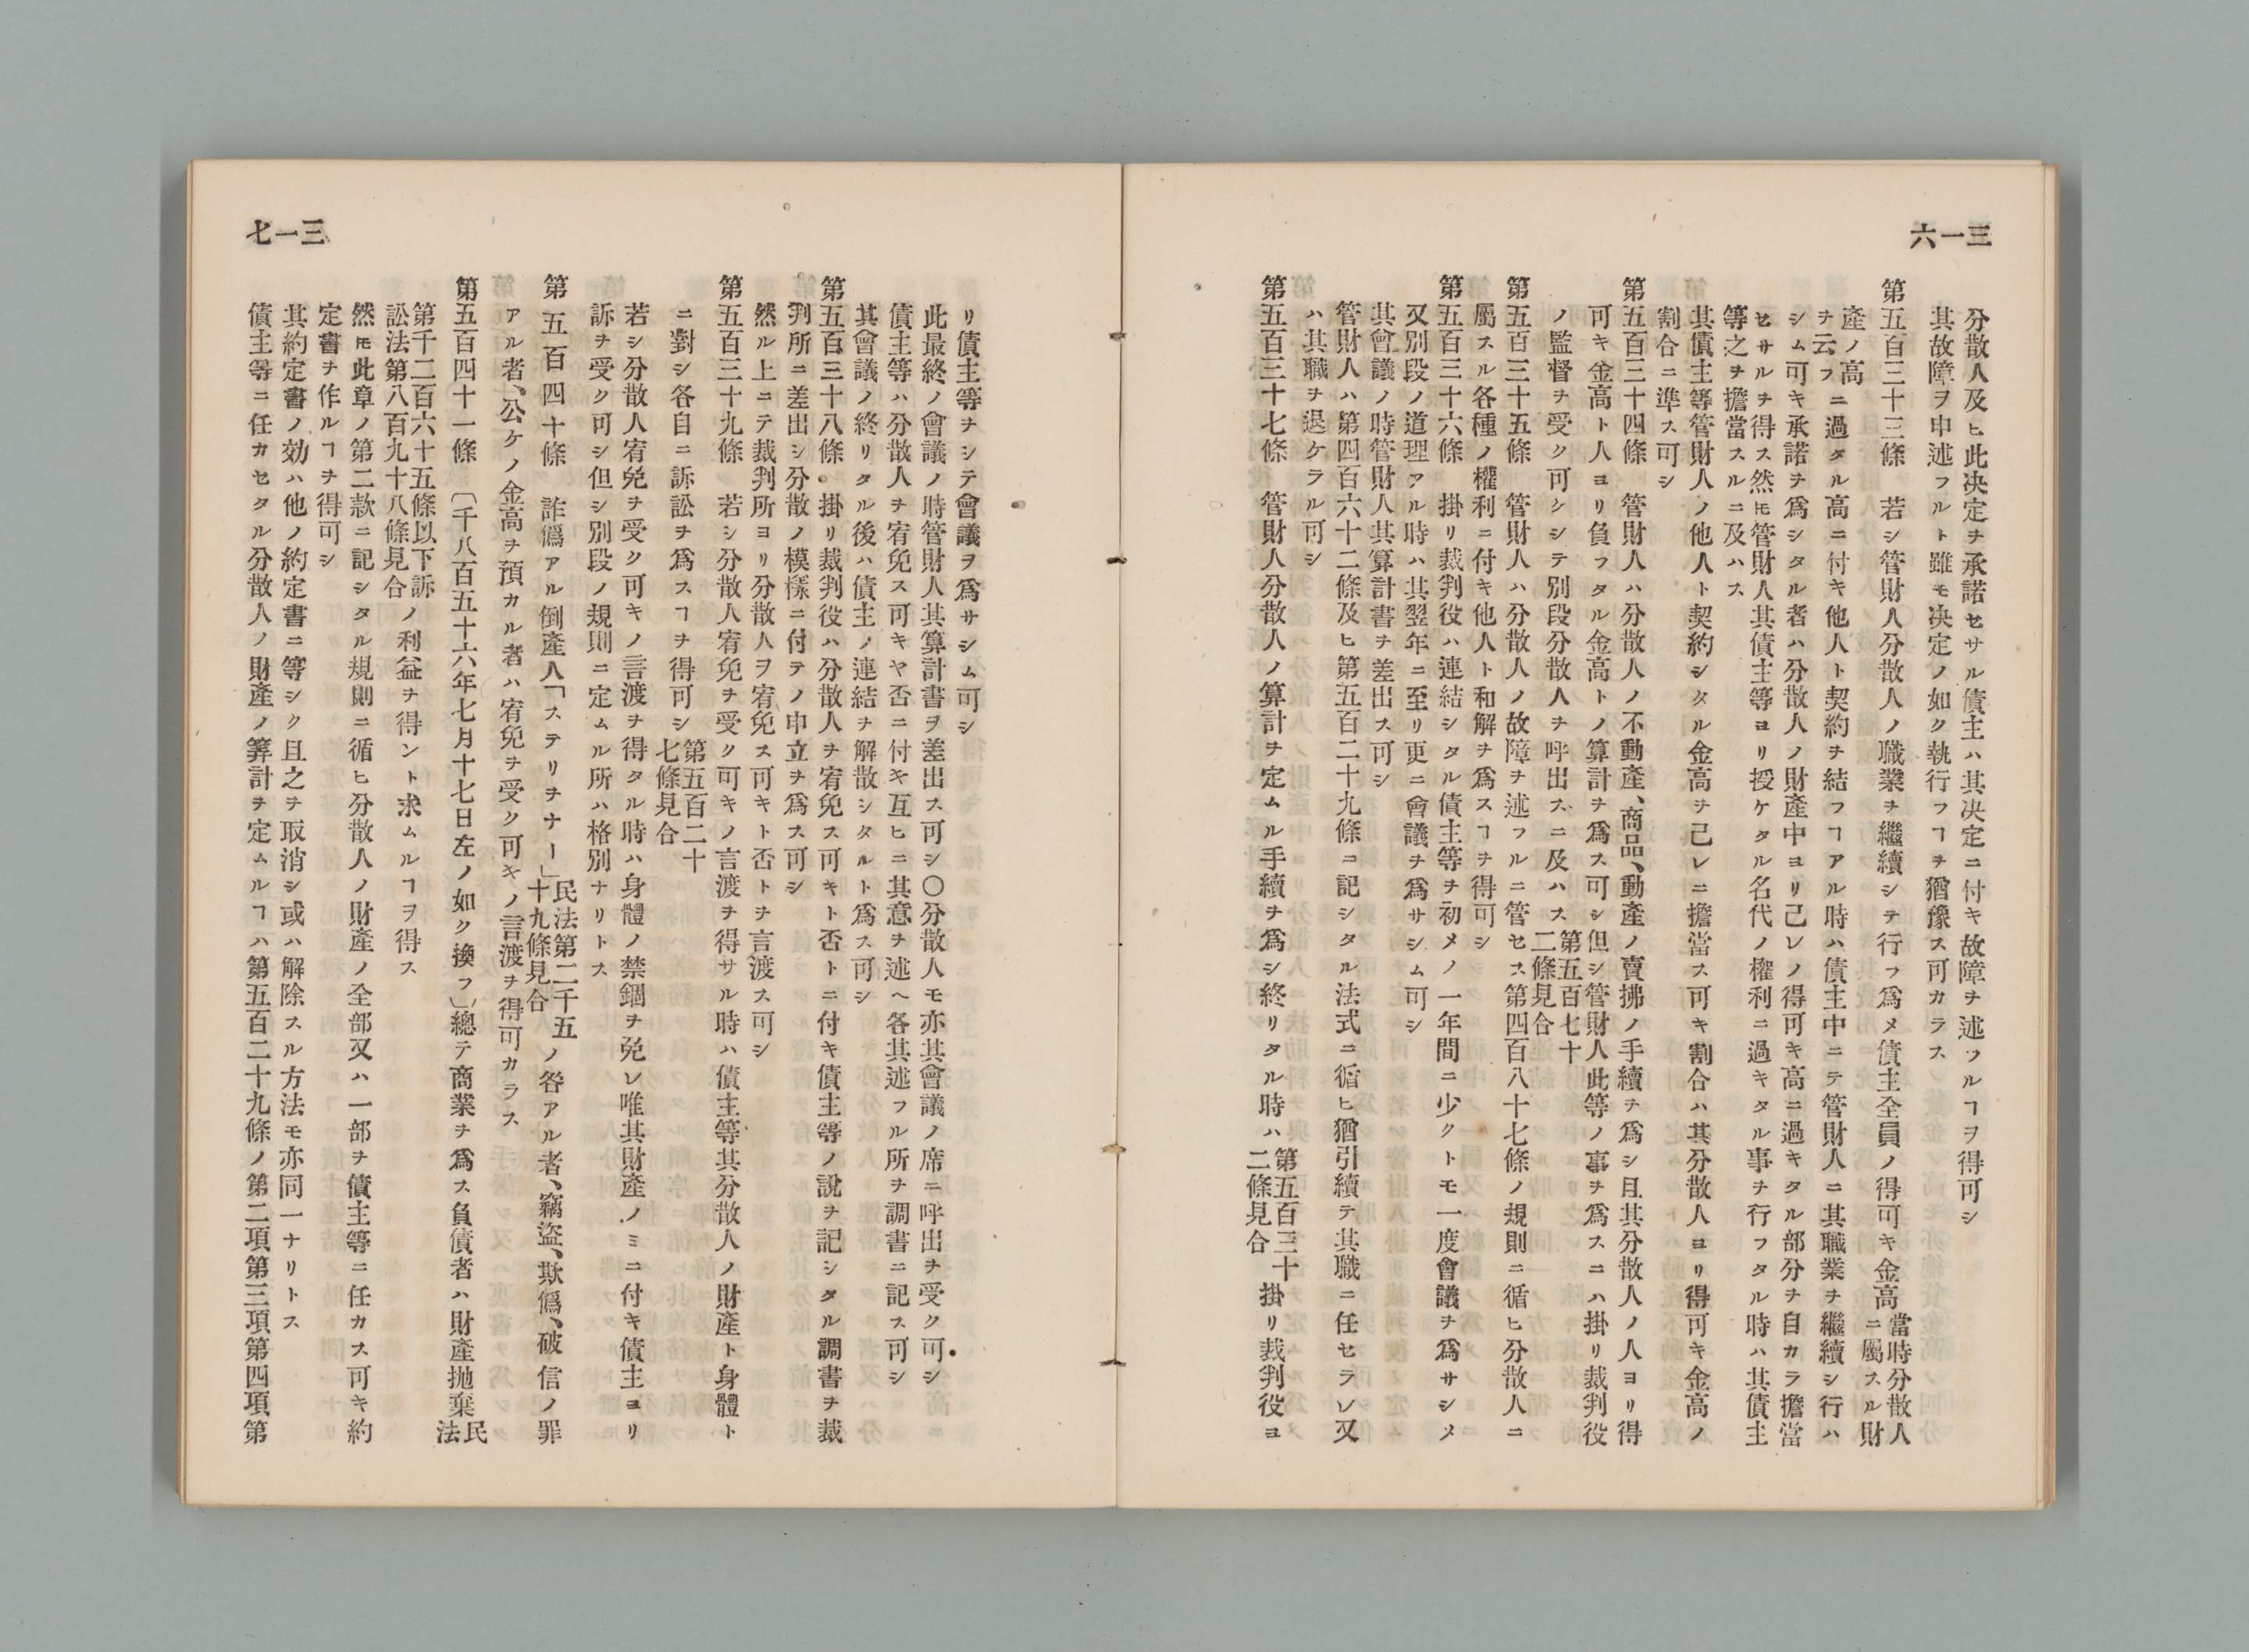 三一六
分散人及ヒ此决定ヲ承諾セサル債主ハ其决定ニ付キ故障ヲ述フルヿヲ得可シ
其故障ヲ申述フルト雖モ决定ノ如ク執行フヿヲ猶豫ス可カラス
第五百三十三條 若シ管財人分散人ノ職業ヲ繼續シテ行フ爲メ債主全員ノ得可キ金高當時分散人ニ屬スル財
產ノ高ヲ云フニ過タル高ニ付キ他人ト契約ヲ結フヿアル時ハ債主中ニテ管財人ニ其職業ヲ繼續シ行ハ
シム可キ承諾ヲ爲シタル者ハ分散人ノ財產中ヨリ己レノ得可キ高ニ過キタル部分ヲ自カラ擔當
セサルヲ得ス然𪜈管財人其債主等ヨリ授ケタル名代ノ權利ニ過キタル事ヲ行フタル時ハ其債主
等之ヲ擔當スルニ及ハス
其債主等管財人ノ他人ト契約シタル金高ヲ己レニ擔當ス可キ割合ハ其分散人ヨリ得可キ金高ノ
割合ニ準ス可シ
第五百三十四條 管財人ハ分散人ノ不動產、商品、動產ノ賣拂ノ手續ヲ爲シ且其分散人ノ人ヨリ得
可キ金高ト人ヨリ負フタル金高トノ算計ヲ爲ス可シ但シ管財人此等ノ事ヲ爲スニハ掛リ裁判役
ノ監督ヲ受ク可シシテ別段分散人ヲ呼出スニ及ハス第五百七十二條見合
第五百三十五條 管財人ハ分散人ノ故障ヲ述フルニ管セス第四百八十七條ノ規則ニ循ヒ分散人ニ
屬スル各種ノ權利ニ付キ他人ト和解ヲ爲スヿヲ得可シ
第五百三十六條 掛リ裁判役ハ連結シタル債主等ヲ初メノ一年間ニ少クトモ一度會議ヲ爲サシメ
又別段ノ道理アル時ハ其翌年ニ至リ更ニ會議ヲ爲サシム可シ
其會議ノ時管財人其算計書ヲ差出ス可シ
管財人ハ第四百六十二條及ヒ第五百二十九條ニ記シタル法式ニ循ヒ猶引續テ其職ニ任セラレ又
ハ其職ヲ退ケラル可シ
第五百三十七條 管財人分散人ノ算計ヲ定ムル手續ヲ爲シ終リタル時ハ第五百三十二條見合掛リ裁判役ヨ
三一七
リ債主等ヲシテ會議ヲ爲サシム可シ
此最終ノ會議ノ時管財人其算計書ヲ差出ス可シ〇分散人モ亦其會議ノ席ニ呼出ヲ受ク可シ
債主等ハ分散人ヲ宥免ス可キヤ否ニ付キ互ヒニ其意ヲ述ヘ各其述フル所ヲ調書ニ記ス可シ
其會議ノ終リタル後ハ債主ノ連結ヲ解散シタルト爲ス可シ
第五百三十八條 掛リ裁判役ハ分散人ヲ宥免ス可キト否トニ付キ債主等ノ說ヲ記シタル調書ヲ裁
判所ニ差出シ分散ノ模樣ニ付テノ申立ヲ爲ス可シ
然ル上ニテ裁判所ヨリ分散人ヲ宥免ス可キト否トヲ言渡ス可シ
第五百三十九條 若シ分散人宥免ヲ受ク可キノ言渡ヲ得サル時ハ債主等其分散人ノ財產ト身體ト
ニ對シ各自ニ訴訟ヲ爲スヿヲ得可シ第五百二十七條見合
若シ分散人宥免ヲ受ク可キノ言渡ヲ得タル時ハ身體ノ禁錮ヲ免レ唯其財產ノミニ付キ債主ヨリ
訴ヲ受ク可シ但シ別段ノ規則ニ定ムル所ハ格別ナリトス
第五百四十條 詐僞アル倒產人「ステリヲナー」民法第二千五十九條見合ノ咎アル者、竊盜、欺僞、破信ノ罪
アル者、公ケノ金高ヲ預カル者ハ宥免ヲ受ク可キノ言渡ヲ得可カラス
第五百四十一條 〔千八百五十六年七月十七日左ノ如ク換フ〕總テ商業ヲ爲ス負債者ハ財產抛棄民法
第千二百六十五條以下訴訟法第八百九十八條見合ノ利益ヲ得ント求ムルヿヲ得ス
然𪜈此章ノ第二款ニ記シタル規則ニ循ヒ分散人ノ財產ノ全部又ハ一部ヲ債主等ニ任カス可キ約
定書ヲ作ルヿヲ得可シ
其約定書ノ効ハ他ノ約定書ニ等シク且之ヲ取消シ或ハ解除スル方法モ亦同一ナリトス
債主等ニ任カセタル分散人ノ財產ノ算計ヲ定ムルヿハ第五百二十九條ノ第二項第三項第四項第